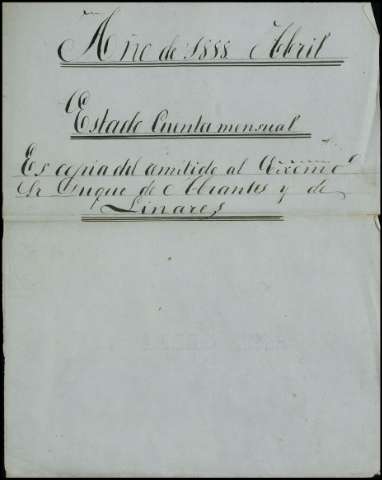 Año de 1888 Abril
Estado Cuenta mensual
Es copia del emitido al Excmo
Sr Duque de Abrantes y de
Linares